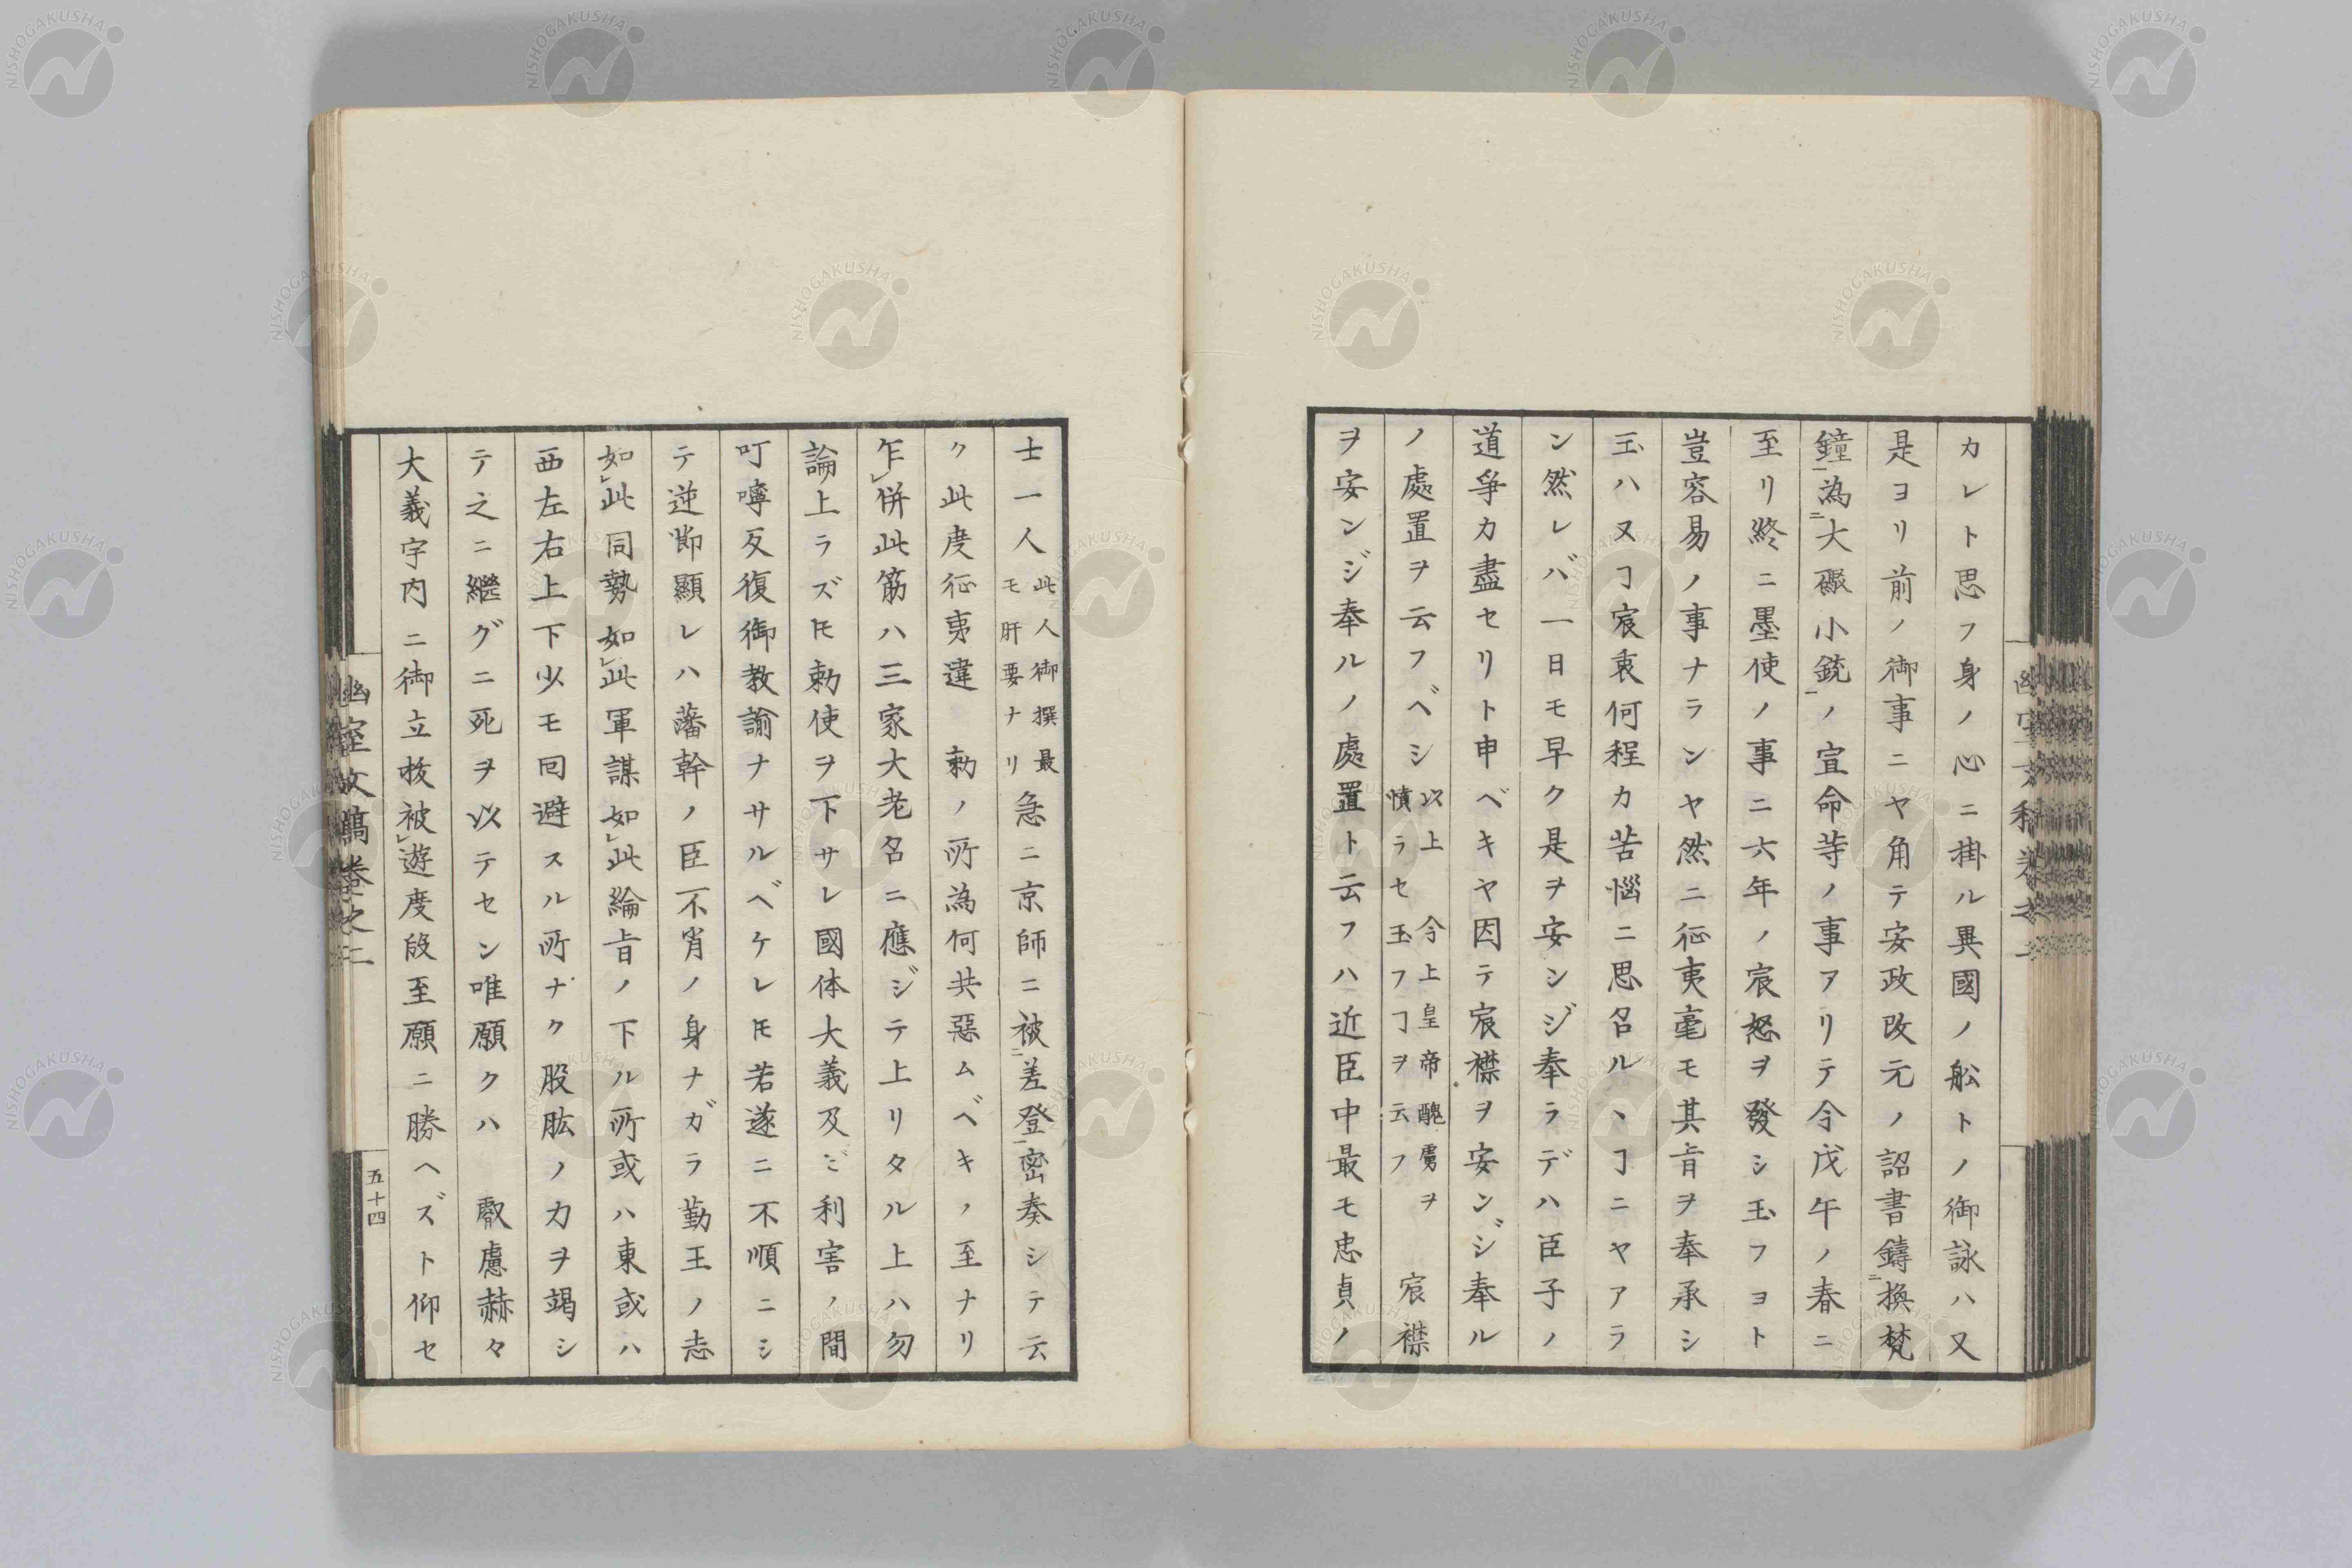 カレト思フ身ノ心ニ掛ル異國ノ舩トノ御詠ハ又
是ヨリ前ノ御事ニヤ角テ安政改元ノ詔書鑄二換梵
鐘一為二大礮小銃一ノ宣命等ノ事アリテ今戊午ノ春ニ
至リ終ニ墨使ノ事ニ六年ノ宸怒ヲ發シ玉フヨト
豈容易ノ事ナランヤ然ニ征夷毫モ其旨ヲ奉承シ
玉ハヌヿ宸衷何程カ苦惱ニ思召ルヽヿニヤアラ
ン然レバ一日モ早ク是ヲ安シジ奉ラデハ臣子ノ
道爭カ盡セリト申ベキヤ因テ宸襟ヲ安ンジ奉ル
ノ處置ヲ云フベシ以上今上皇帝醜虜ヲ
憤ラセ玉フヿヲ云フ宸襟
ヲ安ンジ奉ルノ處置ト云フハ近臣中最モ忠貞ノ
士一人此人御撰最
モ肝要ナリ急ニ京師ニ被二差登一密奏シテ云
ク此度征夷違勅ノ所為何共惡ムベキノ至ナリ
乍レ併此筋ハ三家大老名ニ應ジテ上リタル上ハ勿
論上ラズ𪜈勅使ヲ下サレ國体大義及ビ利害ノ間
叮嚀反復御教諭ナサルベケレ𪜈若遂ニ不順ニシ
テ逆節顯レハ藩幹ノ臣不肖ノ身ナガラ勤王ノ志
如レ此同勢如レ此軍謀如レ此綸旨ノ下ル所或ハ東或ハ
西左右上下少モ回避スル所ナク股肱ノ力ヲ竭シ
テ之ニ継グニ死ヲ以テセン唯願クハ叡慮赫々
大義宇内ニ御立抜被レ遊度段至願ニ勝ヘズト仰セ
幽室文稿巻之二
五十四